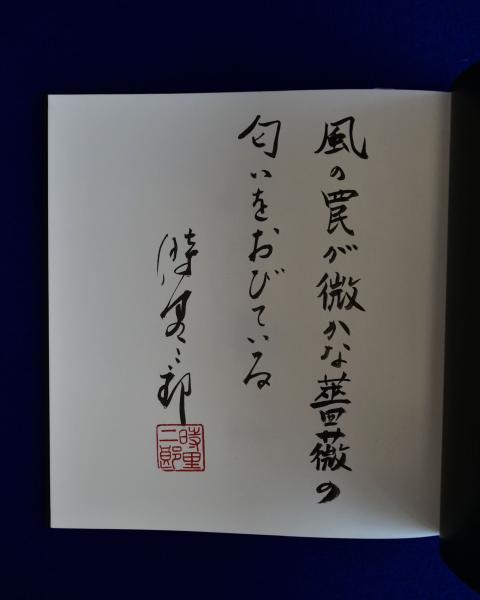 風の罠が微かな薔薇の
匂いをおびている
時里二郎
時里二郎